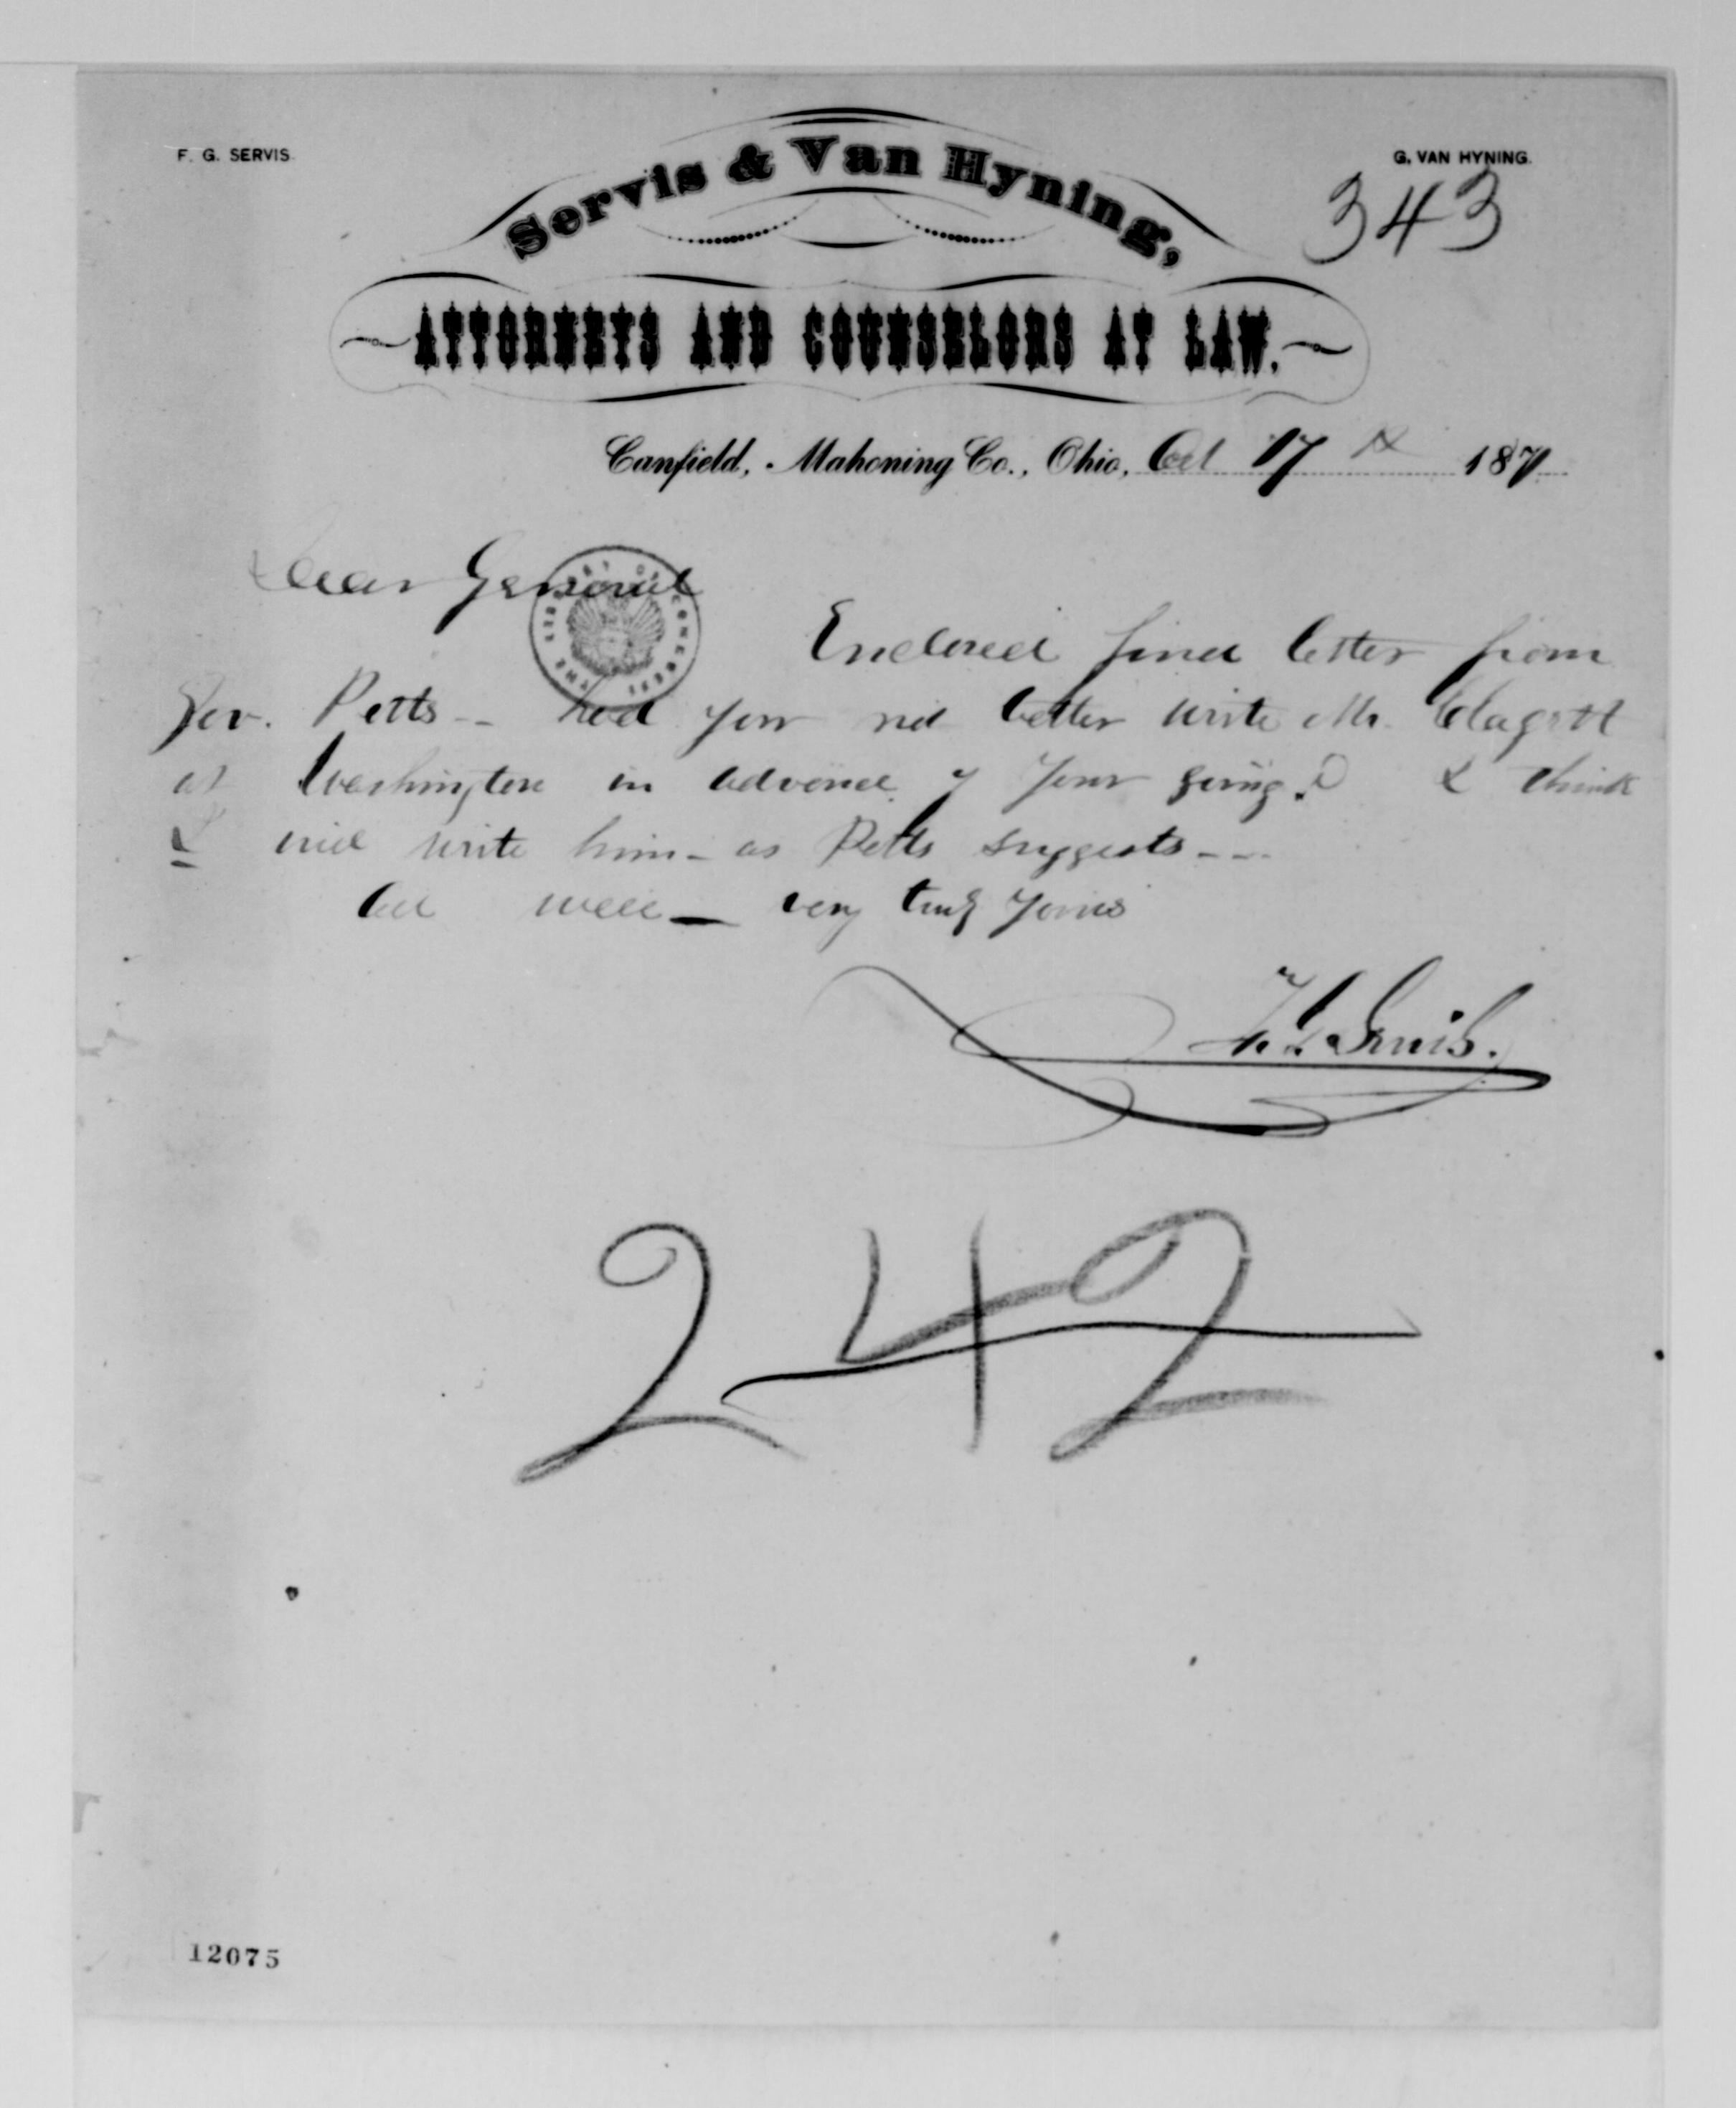 F. G. SERVIS.
G. VAN HYNING.
343
Servis & Van Hyning,
ATTORNEYS AND COUNSELORS AT LAW.
Canfield, Mahoning Co., Ohio, Oct 17 187
Dear General
THE LIBRARY OF CONGRESS 1901
Enclosed find letter from
Gov. Potts -- had you not better write Mr. Clagett
at Washington in advance of your going? I think
I will write him - as Potts suggests ---
All well — very truly yours
F. G. Servis.
242
12075